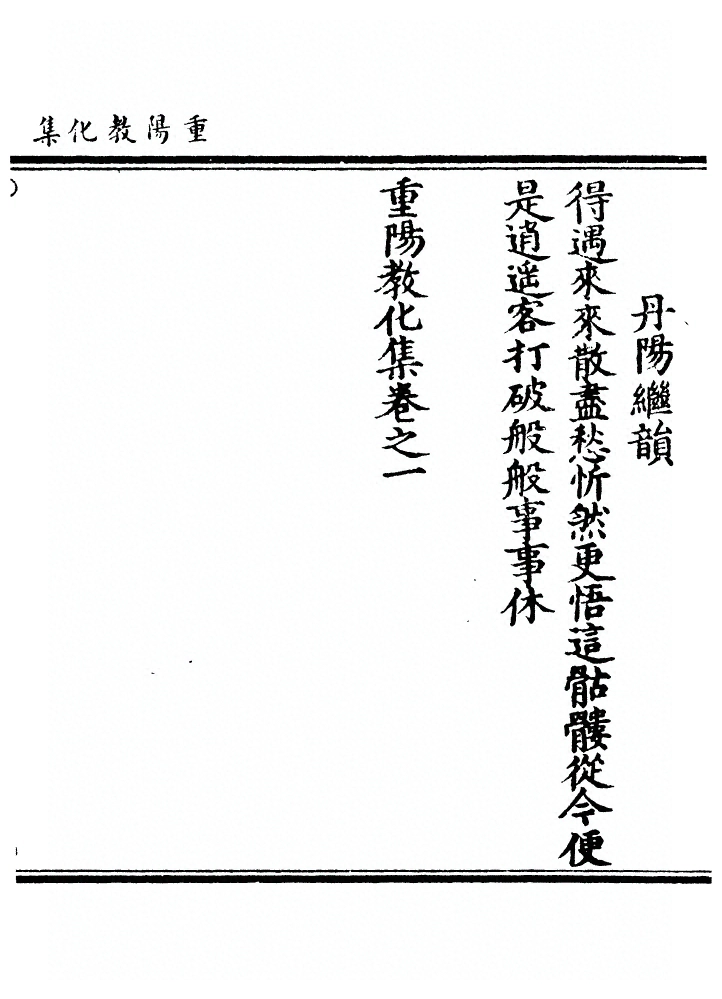 重陽教化集
丹陽繼韻
得遇來來散盡愁忻然更悟這骷髏從今便
是逍遥客打破般般事事休
重陽教化集卷之一